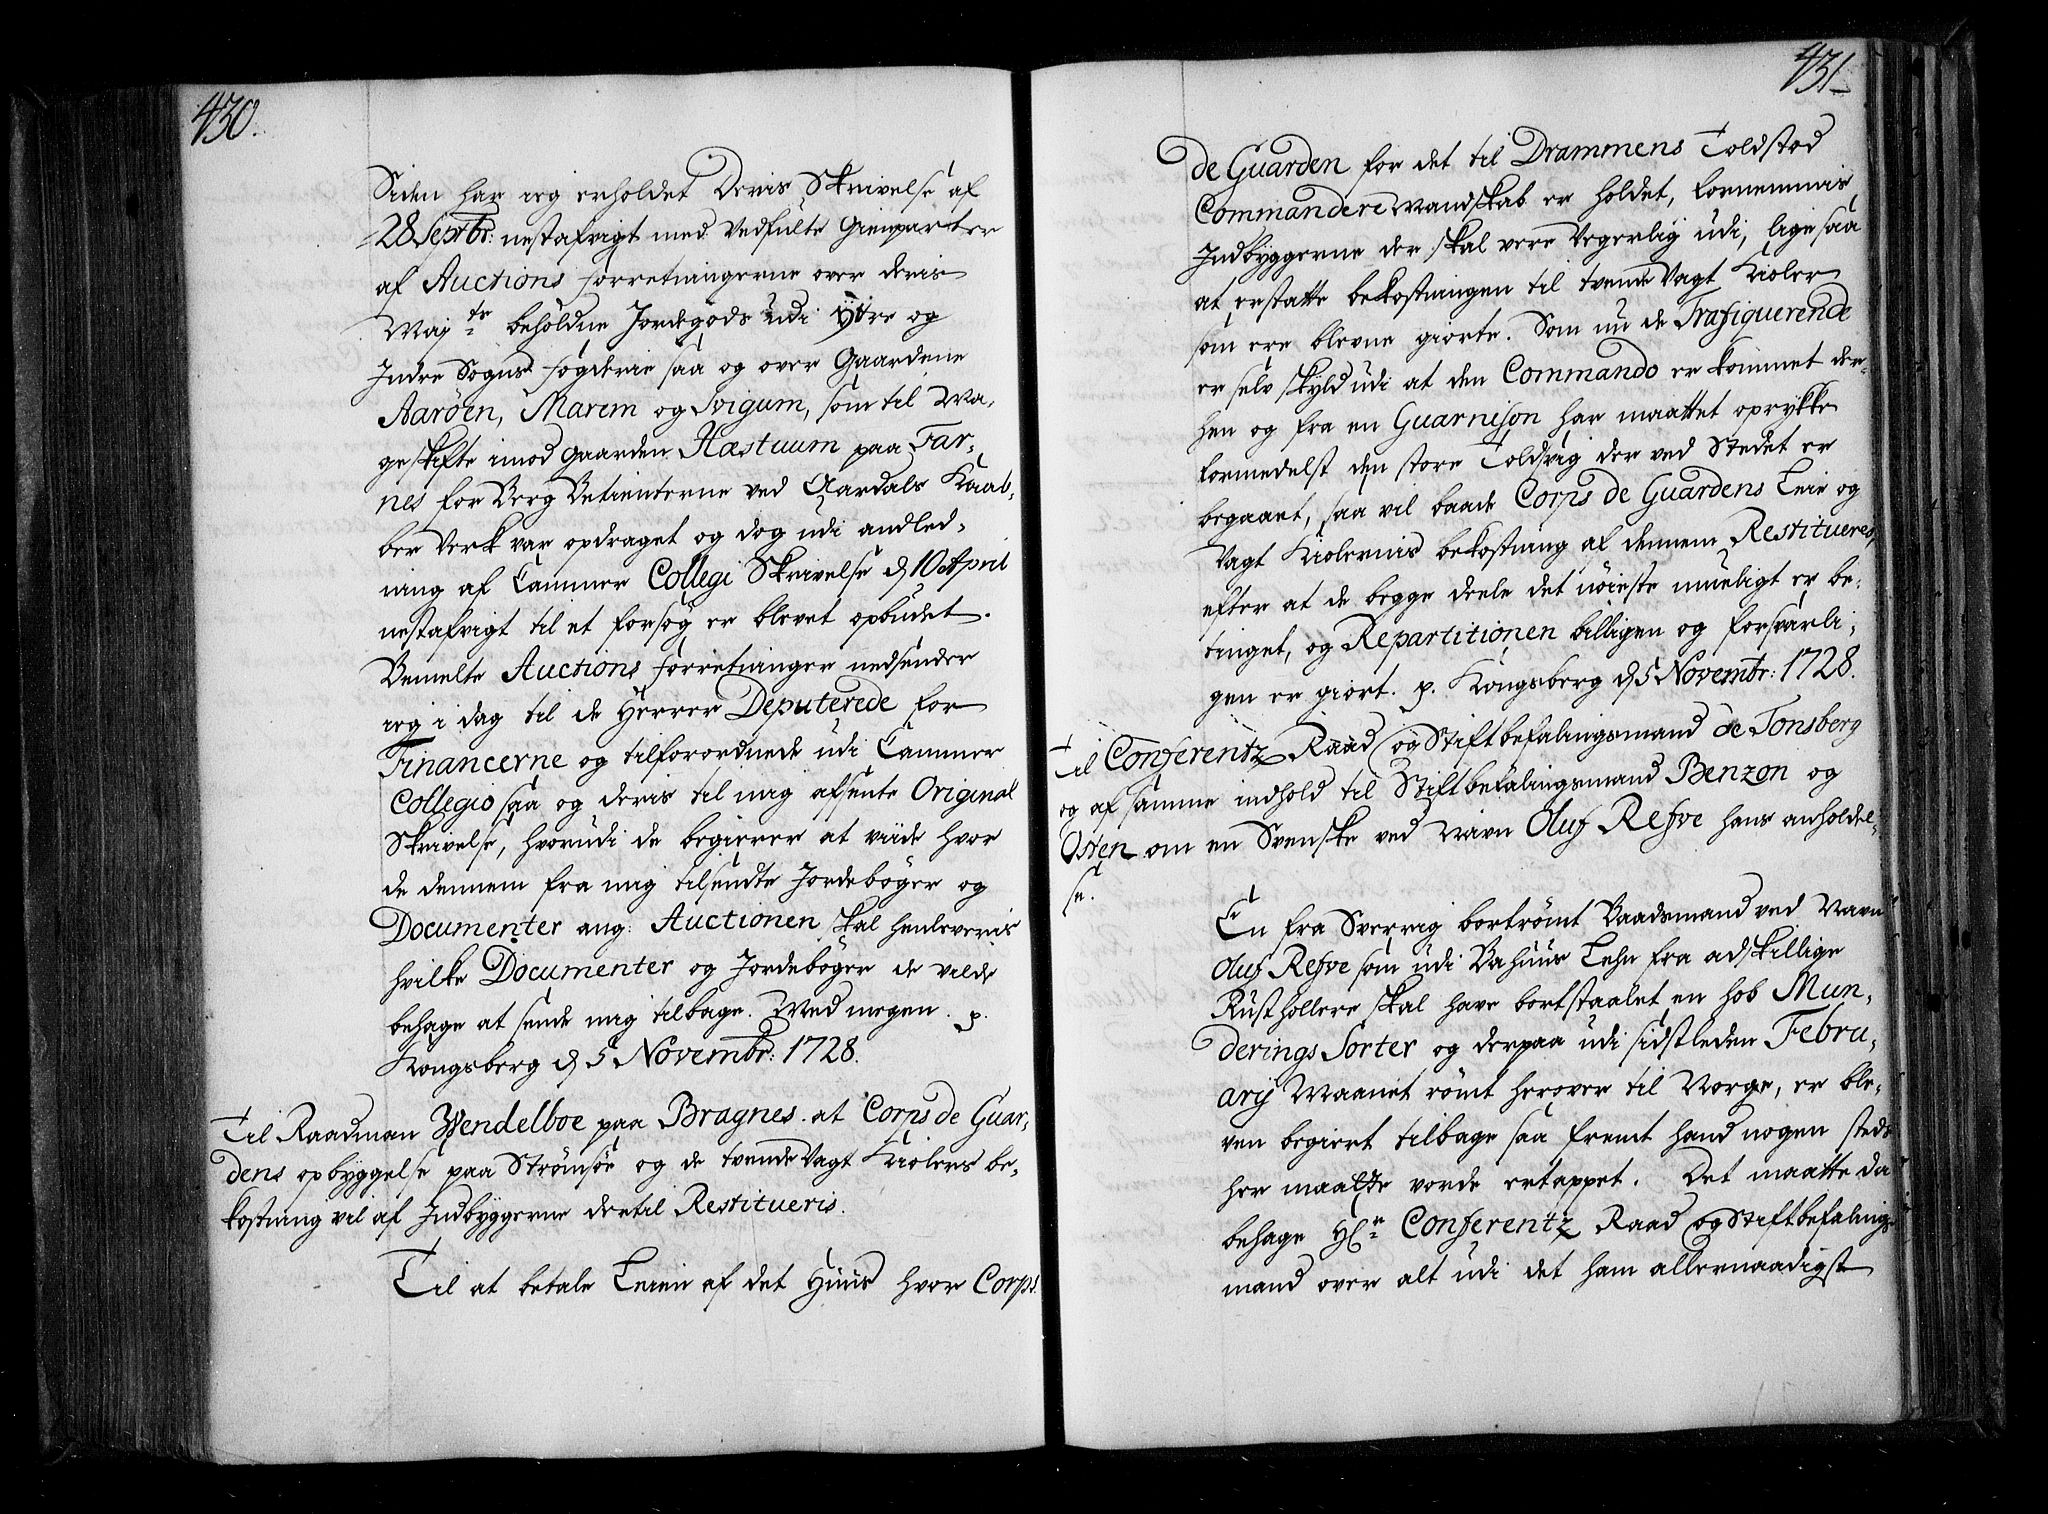 430.
Siden har ieg erholdet Deris Skrivelse af
28 Septbr: nestafvigt med Vedfulte Gienparter
af Auctions forretningerne over deris
Maj.te beholdne Jordegods udi Yttre og
Indre Sogns fogderie saa og over Gaardene
Aarøen, Marem og Svigum, som til Ma-
geskifte imod Gaarden Hæstuum paa Far-
nes for Berg Betienterne ved Aardals Kaab-
ber Verk var opdraget og dog udi andled-
ning af Cammer Collegi Skrivelse d 10 April
nestafvigt til et forsøg er blevet opbudet.
Bemelte Auctions forretninger nedsender
ieg i dag til de Herrer Deputerede for
Financerne og tilforordnede udi Cammer
Collegio saa og deris til mig afsente Original
Skrivelse, hvorudi de begierer at viide hvor
de dennem fra mig tilsendte Jordebøger og
Documenter ang: Auctionen skal henleveris
hvilke Documenter og Jordebøger de vilde
behage at sende mig tilbage. Med megen. p.
Kongsberg d 5 Novembr: 1728.
Til Raadman Wendelboe paa Bragnes. at Corps de Guar-
dens opbyggelse paa Strømsøe og de tvende Vagt Kiolers be-
kostning vil af Indbyggerne dertil Restitueris.
Til at betale Leien af det Huus hvor Corps
431
de Guarden for det til Drammens Toldsted
Commandere Mandskab er holdet, fornemmis
Indbyggerne der skal vere Vegerlig udi, lige saa
at erstatte bekostningen til tvende Vagt Kioler
som ere blevne giorte. Som nu de Trafiquerende
er selv skyld udi at den Commando er kommet der-
hen og fra en Guarnison har maattet oprykke
formedelst den store Toldsvig der ved Stedet er
begaaet, saa vil baade Corps de Guardens Leie og
Vagt Kiolernis bekostning af dennem Restitueres,
efter at de begge deele det nøieste mueligt er be-
tinget, og Repartitionen billigen og forsvarli-
gen er giort. p. Kongsberg d 5 Novembr: 1728.
Til Conferentz Raad og Stiftbefalingsmand de Tonsberg
og af samme indhold til Stiftbefalingsmand Benzon og
Osten om en Svenske ved Navn Oluf Refve hans anholdel-
se.
En fra Sverrig bortrømt Baadsmand ved Navn
Oluf Refve som udi Bahuus Lehn fra adskillige
Rusthollere skal have bortstaalet en hob Mun-
derings Sorter og derpaa udi sidstleden Febru-
arij Maanet rømt herover til Norge, er ble-
ven begiert tilbage saa fremt hand nogen steds
her maatte vorde ertappet. Det maatte da
behage Hr. Conferentz Raad og Stiftbefalings
mand over alt udi det ham allernaadigst